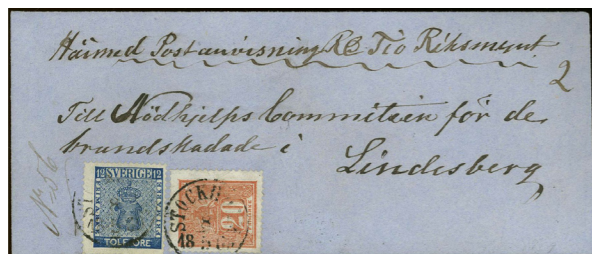 Härmed Postanvisning Rd Tio Riksmynt
2
Till Nödhjelps Committeen för de
brandskadade i Lindesberg
No 56
12 SVERIGE 12
TOLF ÖRE
STOCKH
20
18